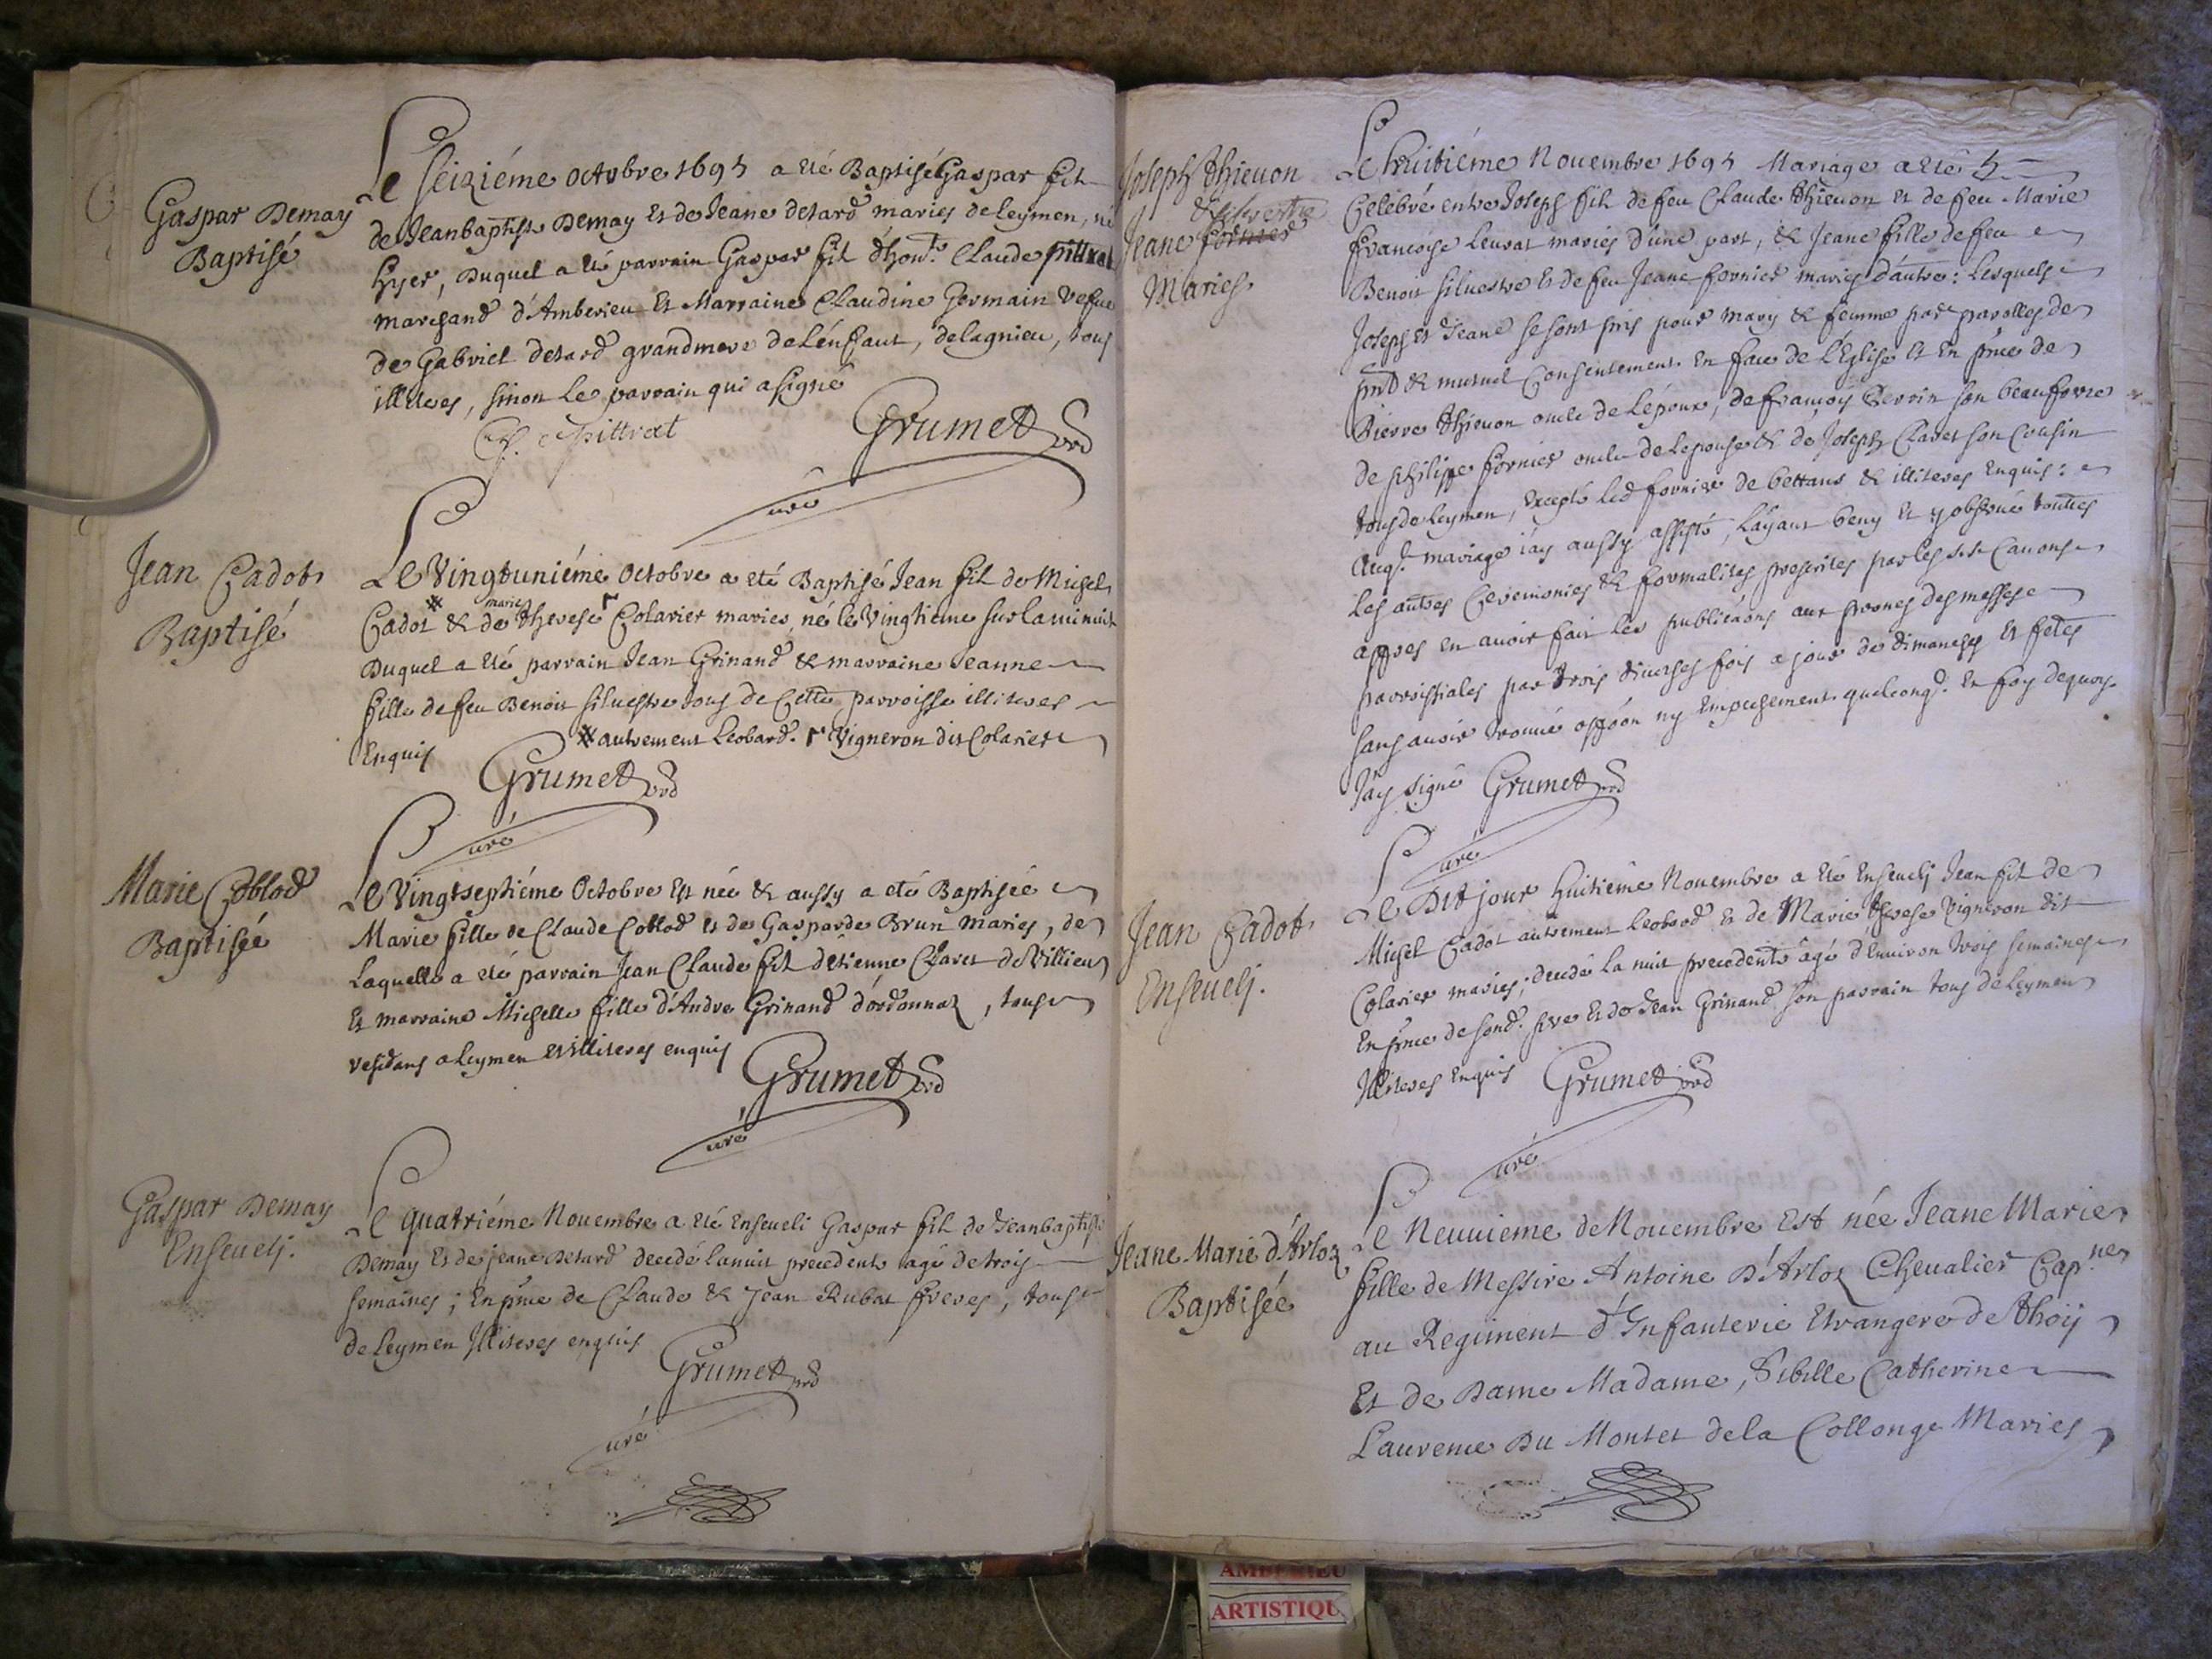 Gaspar Demay
Baptisé
Le Seiziéme octobre 1695 a eté Baptisé Gaspar fil
de Jeanbaptiste Demay et de Jeane detard maries de Leymen, né
hyer, Duquel a eté parrain Gaspar fil d'hon.e Claude pittrat
marchand d'Amberieu Et Marraine Claudine Germain vefue
de Gabriel detard grandmere de L'énfant, de Lagnieu, tous
illiteres, sinon Le parrain qui a signé
G. Pittrat
Grumet
curé
Jean Cadot
Baptisé
Le Vingtuniéme Octobre a eté Baptisé Jean fil de Michel
Cadot & de marie Therese Colarier maries, né le Vingtieme sur la minuit
Duquel a eté parrain Jean Grinand & marraine Jeanne
fille de feu Benoit siluestre tous de Cette parroisse illiteres
Enquis
autrement Leobard. Vigneron dit Colarier
Grumet
curé
Marie Coblod
Baptisée
Le Vingtseptiéme Octobre Est née & aussy a eté Baptisée
Marie fille de Claude Coblod et de Gasparde Brun maries, de
Laquelle a eté parrain Jean Claude fil d'étienne Claret de Villieu
Et marraine Michelle fille d'Andre Grinand d'ordonnaz, tous
residans a Leymen et illiteres enquis
Grumet
curé
Gaspar Demay
Enseueli.
Le quatriéme Nouembre a eté Enseueli Gaspar fil de Jeanbaptiste
Demay Et de jeane Detard decedé la nuit precedente agé de trois
semaines; En pnce de Claude & Jean Rubat freres, tous
de Leymen Illiteres enquis
Grumet
curé
Joseph Thieuon
Siluestre
Jeane fornier
Maries.
Le huitiéme Nouembre 1695 Mariage a eté
Celebré entre Joseph fil de feu Claude Thieuon et de feu Marie
francoise Leurat maries d'une part, & Jeane fille de feu
Benoit siluestre Et de feu Jeane fornier maries d'autre: Lesquels
Joseph et Jeane se sont pris pour mary & femme par parolles de
pnt & mutuel Consentement. En face de L'Eglise Et En pnce de
Pierre Thieuon oncle de L'époux, de francois Perrin son beaufrere
de philippe fornier oncle de L'epouse & de Joseph Claret son Cousin
tous de Leymen, excepté led fornier de bettans & illiteres Enquis:
Auq.l mariage j'ay aussy assisté, L'ayant beny Et y obserué touttes
Les autres Ceremonies & formalites prescrites par les s.s. Canons
appres en auoir fait les publicãons aux prones des messes
parroissiales par trois diuerses fois a jour de dimanches Et fetes
sans auoir trouué oppõon ny Empechement. quelconq.e En foy dequoy
J'ay signé Grumet
curé
Jean Cadot
Enseueli.
Le Dit jour huitiéme Nouembre a eté Enseueli Jean fil de
Michel Cadot autrement Leobard et de Marie Therese Vigneron dit
Colarier maries; decedé la nuit precedente agé d'enuiron trois semaines
En pnce de sond. pere Et de Jean Grinand son parrain tous de Leymen
Illiteres Enquis
Grumet
curé
Jeane Marie d'Arloz
Baptisée
Le Neuuieme de Nouembre Est née Jeane Marie
fille de Messire Antoine D'Arloz Cheualier Cap.ne
au Regiment d'Infanterie Etrangere de Thoÿ
Et de Dame Madame, Sibille Catherine
Laurence Du Montet de la Collonge Maries
AMBERIEU
ARTISTIQU